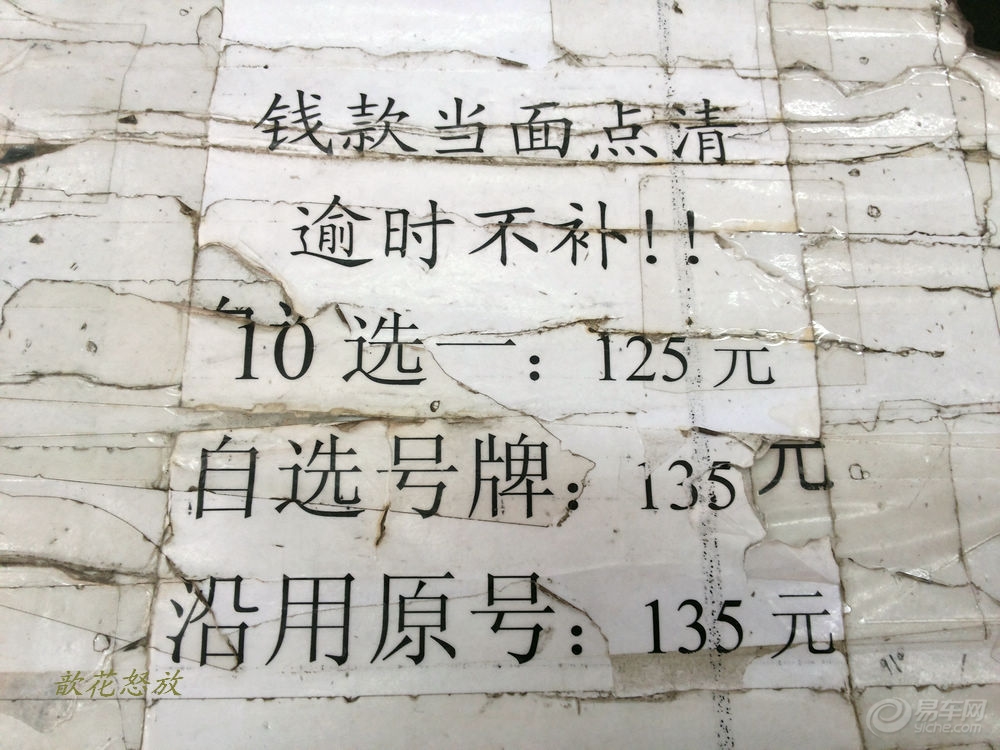 钱款当面点清
逾时不补!!
10选一：125元
自选号牌：135元
沿用原号：135元
歆花怒放
易车网
yiche.com